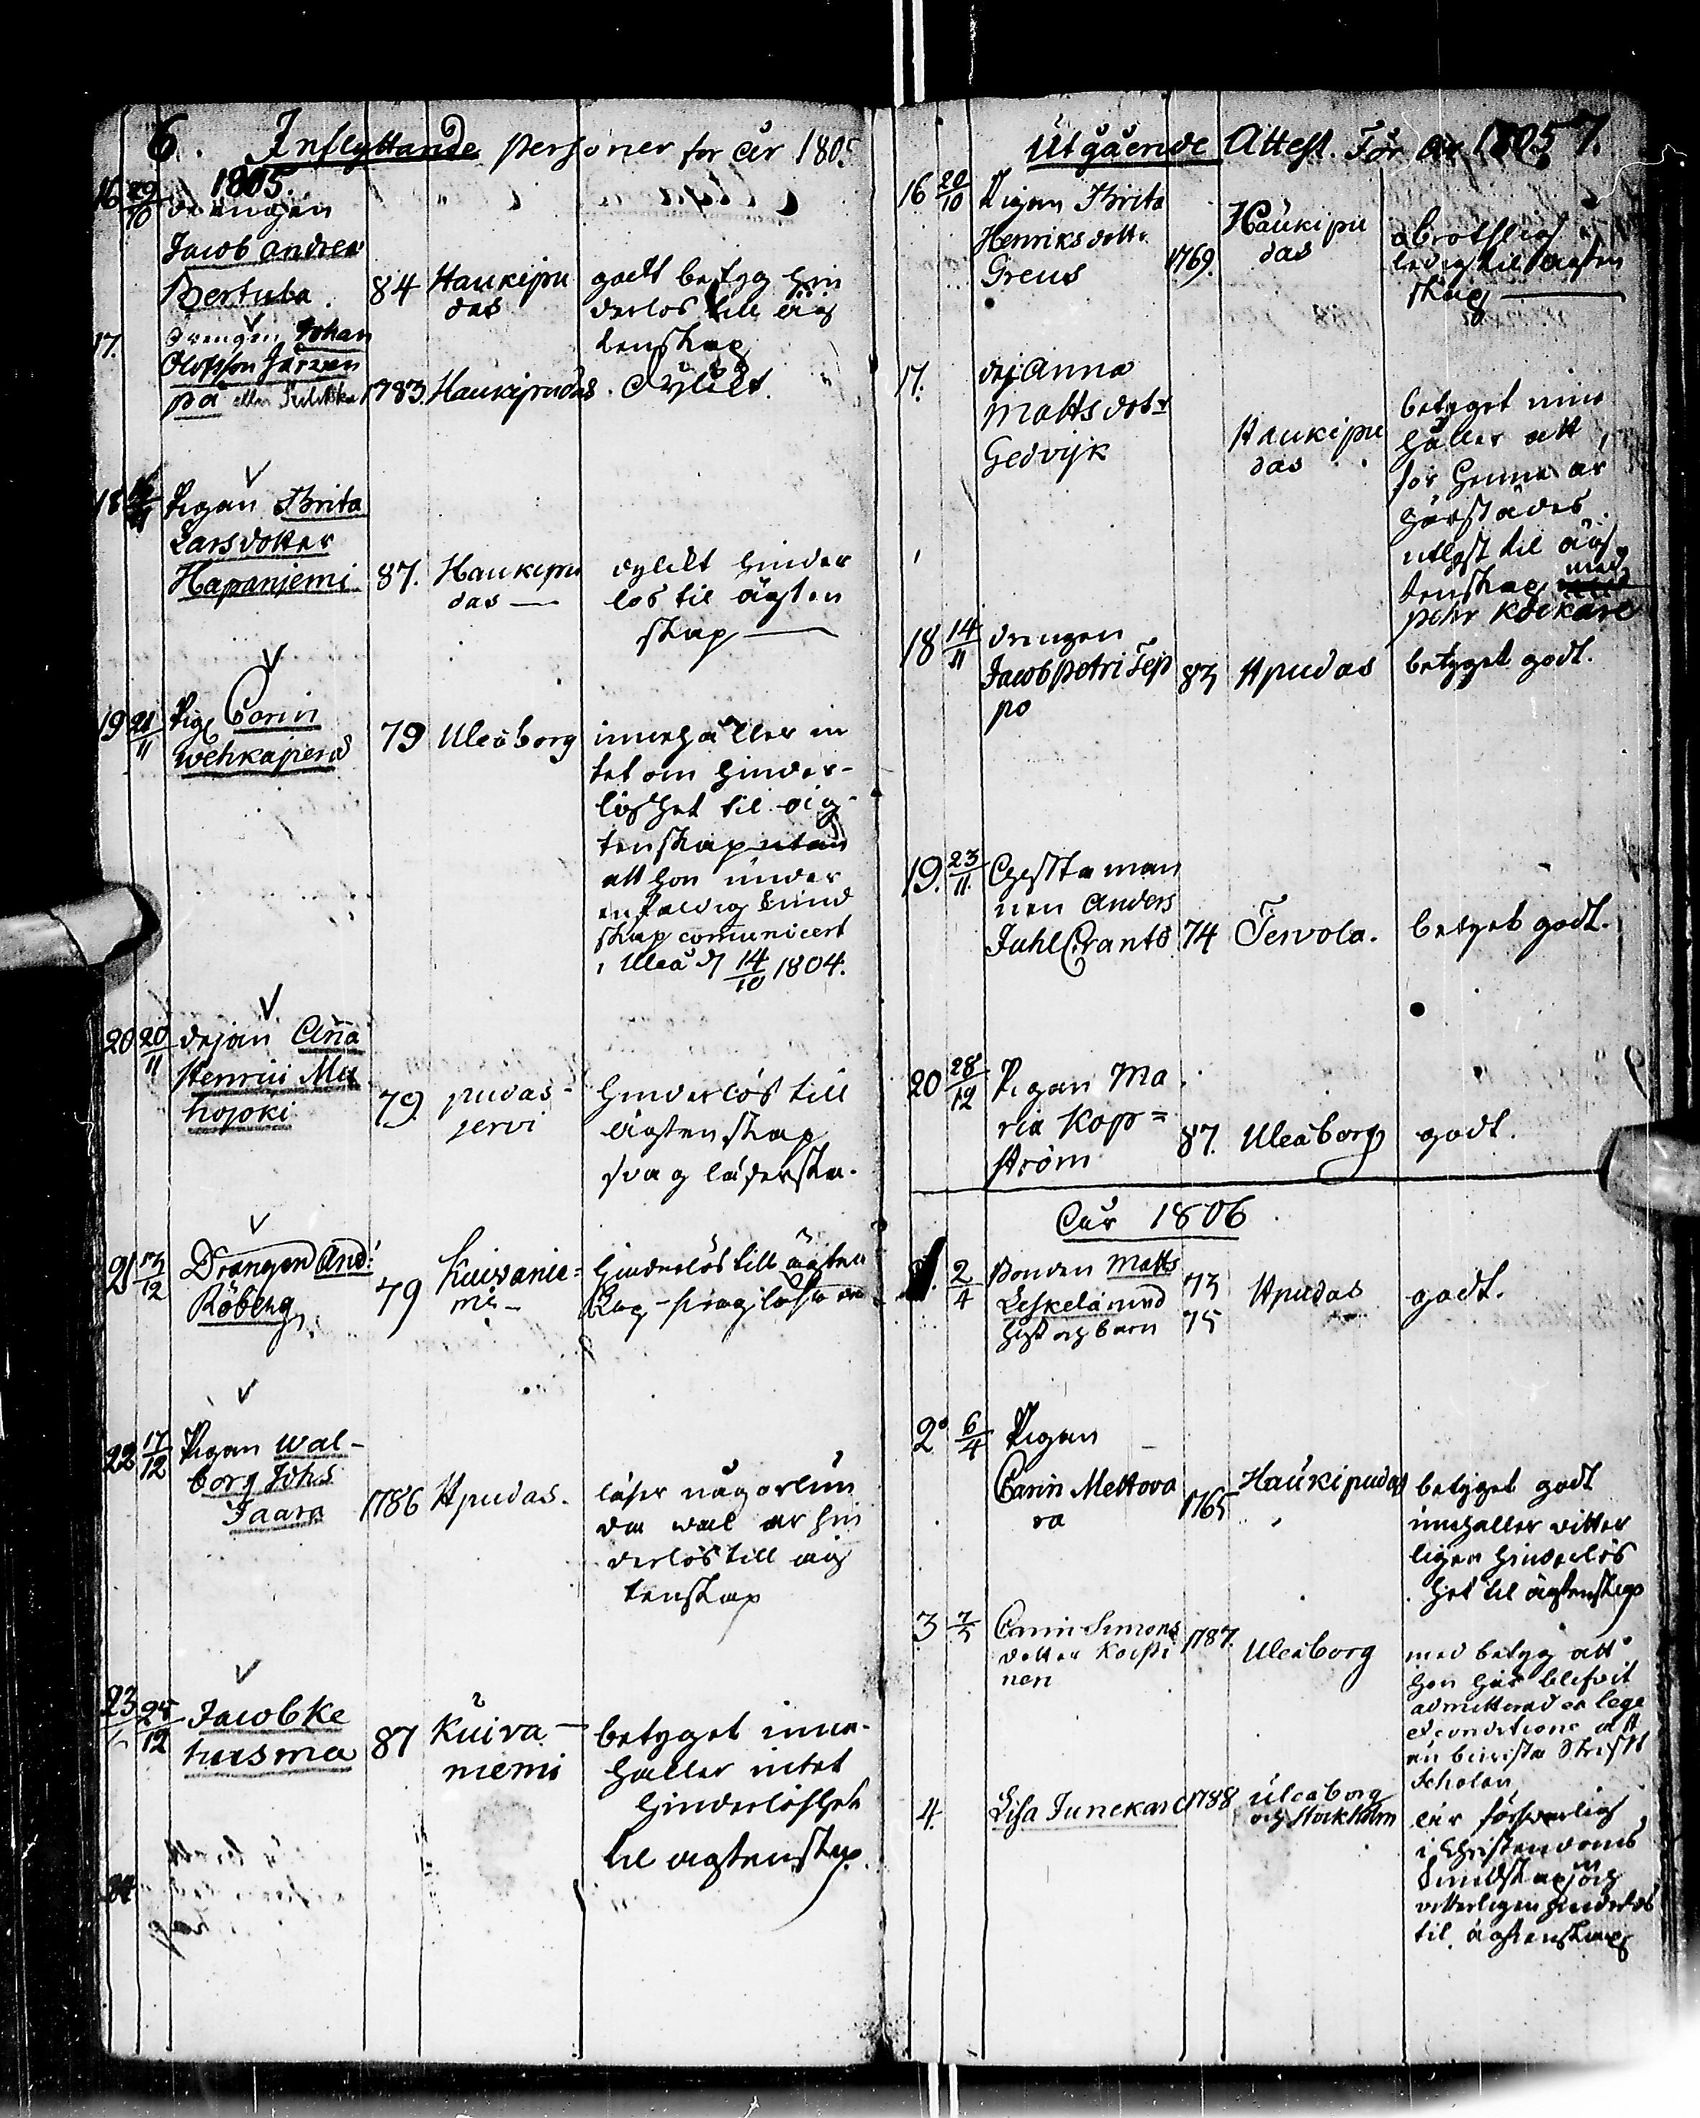 6. Inflyttande personer for år 1805
1805.
16 29/10 drängen
Jacob andrea
Bertula 84 Haukipu
das
godt betyg hin
derlös till äg
tenskap
17. drengen Johan
Olofsson Järven
pä eller 1783. Haukipudas. dylikt.
18 Pigan Brita
Larsdotter
Hapaniemi 87. Haukipu
das —
dylikt hinder
lös til ägten
skap —
19 21/11 Pig. Carin
wehkaperä 79 Uleåborg
innehåller in
tet om hinder-
löshet til äg-
tenskap utan
att hon under
enfaldig kund
skap comunicert
i Uleå d 14/10 1804.
20 20/11 dejan Aña
Henrici Mu
hojoki 79. pudas-
jervi
hinderlös till
ägtenskap
svag läserska.
21 13/12 Drängen And:
Röberg 79 Kuivanie=
mi –
hinderlös till ägten
skap - svag
22 17/12 Pigan Wal-
borg Johs
Jaara 1786 Hpudas.
läser någorlun
da wäl är hin
derlös till äg
tenskap
23 25/12 Jacob Ke
huusmaa 87 Kuiva-
niemi
betyget inne-
håller intet
hinderlöshet
til ägtenskap.
24.
Utgående Attest. För år 1805 7.
16 20/10 Pigan Brita
Henriksdotter
Greus 1769. Haukipu
das
obrotslig
ledig til ägten
skap —
17. dej Anna
Mattsdotr
Gedvijk Haukipu
das
betyget inne
håller att
för henne är
härstädes
utlyst til äg
tenskap med
pehr Kockare
18 14/11 drengen
Jacob petri Tep
po 83 Hpudas betyget godt.
19. 23/11. Gifta man
nen Anders
Juhl Cranto 74 Tervola. betyget godt.
20 28/12 Pigan Ma
ria Kopp=
ström 87. Uleåborg godt.
År 1806
1. 2/4 Bonden Matts 73
Leskelä med
hust och barn 75 Hpudas godt.
2. 6/4 Pigan
Carin Mettova
ra 1765 Haukipudas
betyget godt
innehåller vitter
ligen hinderlös
het til ägtenskap
3 7/5 Carin Simons
dotter Koisti
nen 1787. Uleåborg
med betyg att
hon här blifvit
admitterad ea lege
et conditione att
än bevista Skrift
Scholan
4. Lisa Junckare 1788 Uleåborg
och Stockholm
är försvarlig
i Christendoms
kundskap och
vitterligen hinderlös
til ägtenskap